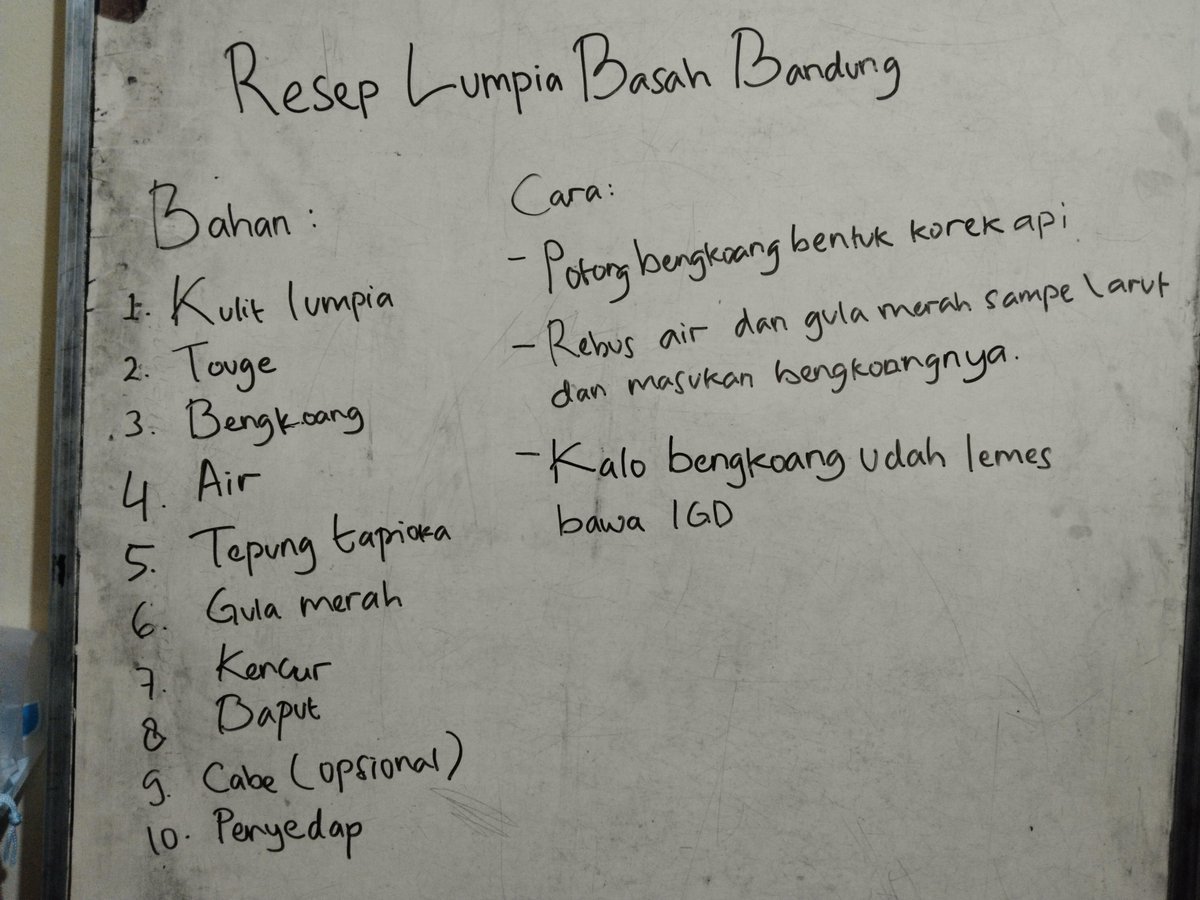 Resep Lumpia Basah Bandung
Bahan :
1. Kulit lumpia
2. Touge
3. Bengkoang
4. Air
5. Tepung tapioka
6. Gula merah
7. Kencur
8 Baput
9. Cabe (opsional)
10. Penyedap
Cara:
- Potong bengkoang bentuk korek api
- Rebus air dan gula merah sampe larut
dan masukan bengkoangnya.
- Kalo bengkoang udah lemes
bawa IGD